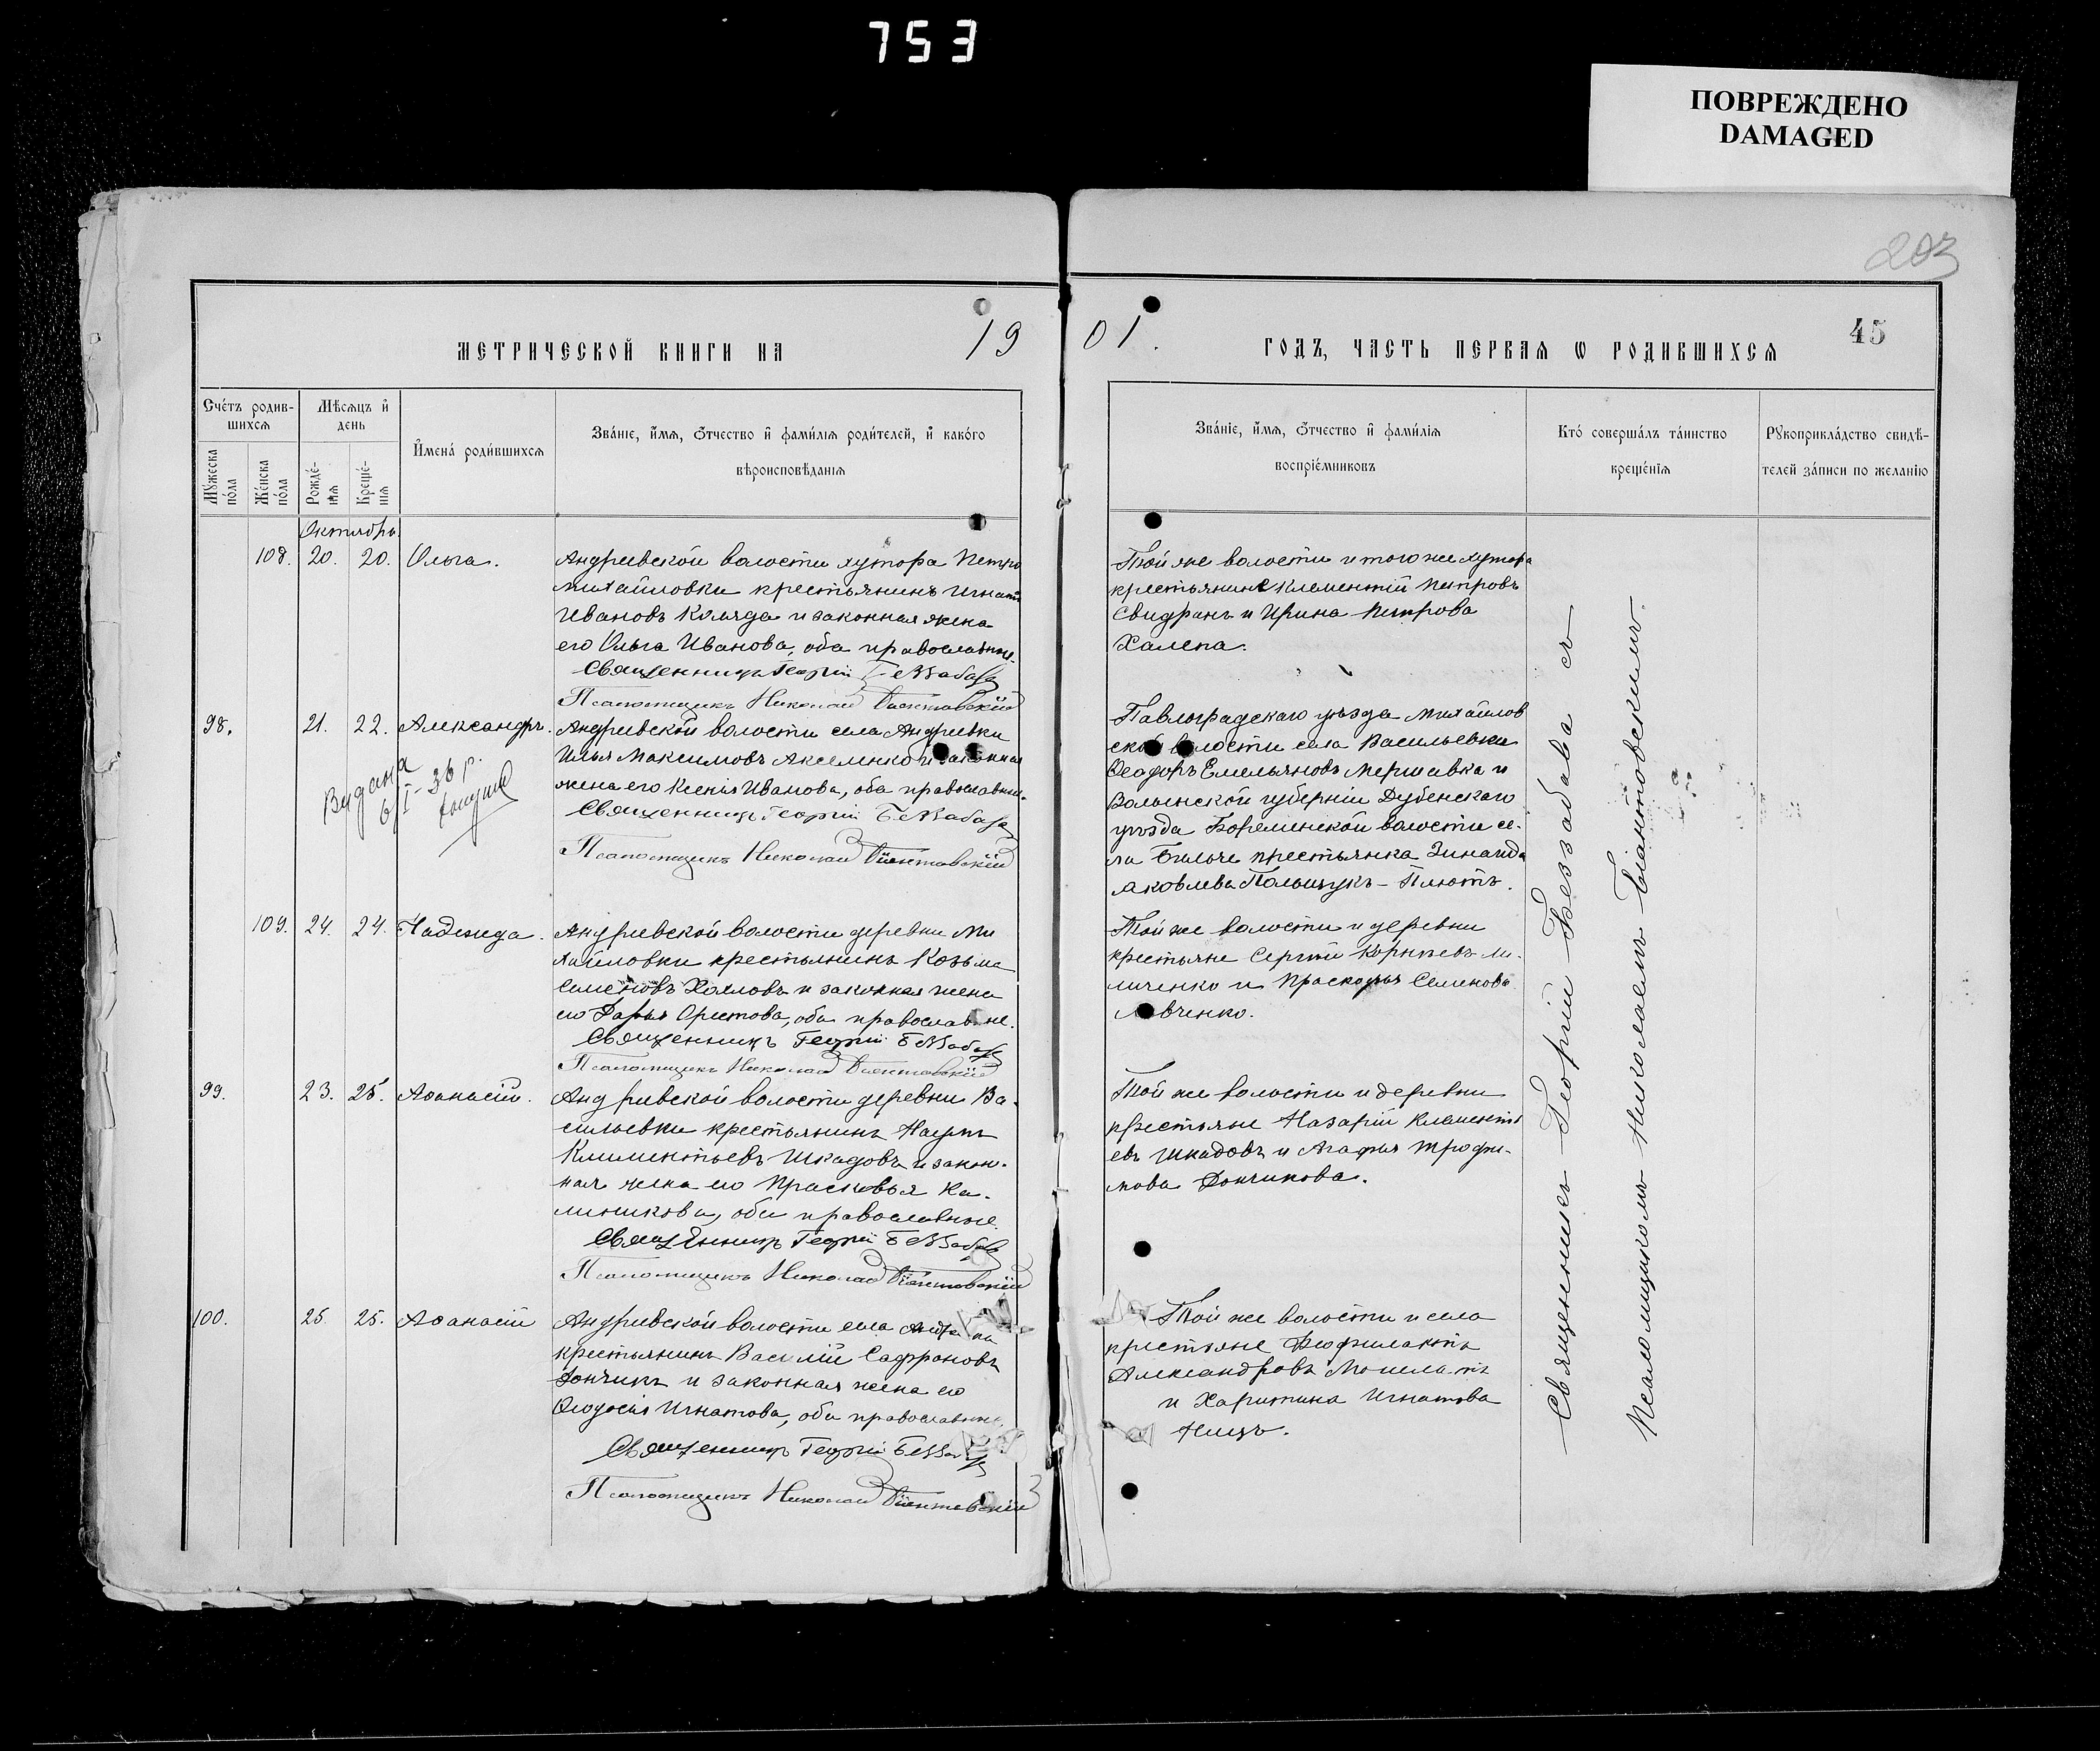 753
ПОВРЕЖДЕНО
DAMAGED
203
45
МЕТРИЧЕСКОЙ КНИГИ НА 19
01. ГОДЪ, ЧАСТЬ ПЕРВАЯ Ѡ РОДИВШИХСЯ
Счетъ родив-
шихся
Мѣсяцъ и
день
Мужеска
пола
Женска
пола
Рожде-
нія
Креще-
нія
Имена родившихся
Званіе, имя, отчество и фамилія родителей, и какого
вѣроисповѣданія
Званіе, имя, отчество и фамилія
воспріемниковъ
Кто совершалъ таинство
крещенія
Рукоприкладство свидѣ-
телей записи по желанію
Октябрь
108. 20. 20. Ольга.
Андреевской волости хутора Петро
Михайловки крестьянинъ Игнатій
Ивановъ Коляда и законная жена
его Ольга Иванова, оба православные.
Священникъ Георгій Беззабава
Псаломщикъ Николай
Той же волости и того же хутора
крестьяне Климентій Петровъ
Свидранъ и Ирина Петрова
Халепа.
98. 21. 22. Александръ.
Видана
6/I-36 р.
Андреевской волости села Андреевки
Илья Максимовъ Акименко и законная
жена его Ксенія Иванова, оба православные.
Священникъ Георгій Беззабава
Псаломщикъ Николай
Павлоградскаго уѣзда Михайлов
ской волости села Васильевки
Ѳеодоръ Емельяновъ Мершавка и
Волынской губерніи Дубенскаго
уѣзда Боремельской волости се-
ла крестьянка Зинаида
Яковлева
109. 24. 24. Надежда.
Андреевской волости деревни Ми
хайловки крестьянинъ Козьма
Семеновъ Хохловъ и законная жена
его Дарья Орестова, оба православные.
Священникъ Георгій Беззабава
Псаломщикъ Николай
Той же волости и деревни
крестьяне Сергій Корнѣевъ Ми-
личенко и Прасковья Семенова
Левченко.
99. 23. 25. Аѳанасій.
Андреевской волости деревни Ва-
сильевки крестьянинъ Наумъ
Климентьевъ Шкадовъ и закон-
ная жена его Прасковья Ка-
линикова, оба православные.
Священникъ Георгій Беззабава
Псаломщикъ Николай
Той же волости и деревни
крестьяне Назарій Климентъ
евъ Шкадовъ и Агафья Трофи-
мова Дончикова.
100. 25. 25. Аѳанасій
Андреевской волости села
крестьянинъ Василій Сафроновъ
Дончикъ и законная жена его
Ѳеодосія Игнатова, оба православные.
Священникъ Георгій
Псаломщикъ Николай
Той же волости и села
крестьяне Феофилактъ
Александровъ
и Харитина Игнатова
Священникъ Георгій Беззабава съ
Псаломщикомъ Николаемъ